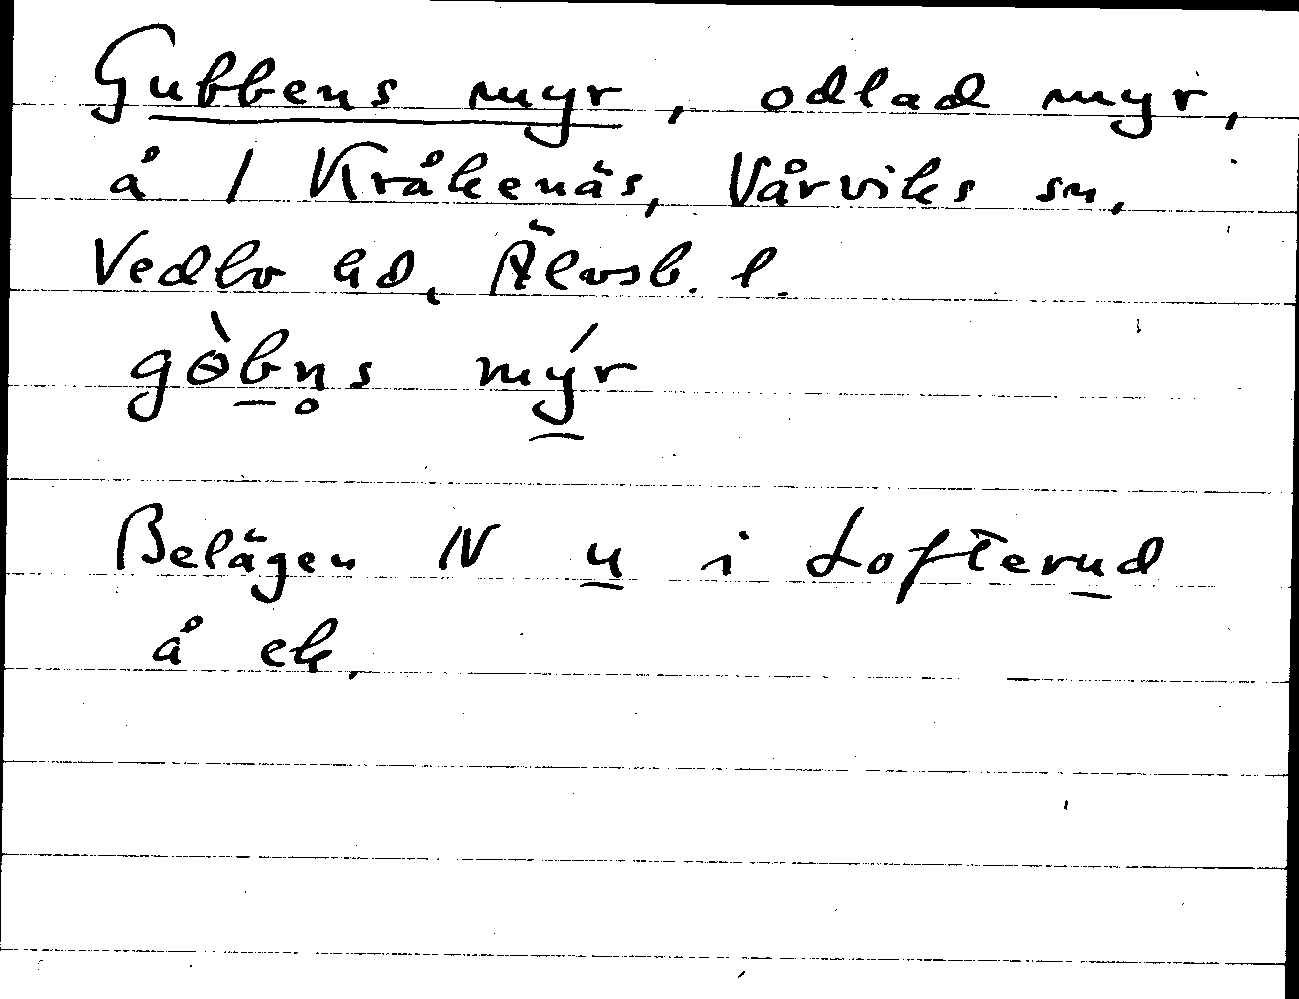 Gubbens myr, odlad myr,
å 1 Kråkenäs, Vårviks sn,
Vedbo hd, Älvsb. l.
gɵ̀b̲n̥s mý̲r
Belägen N u̲ i Lofteru̲d
å ek.